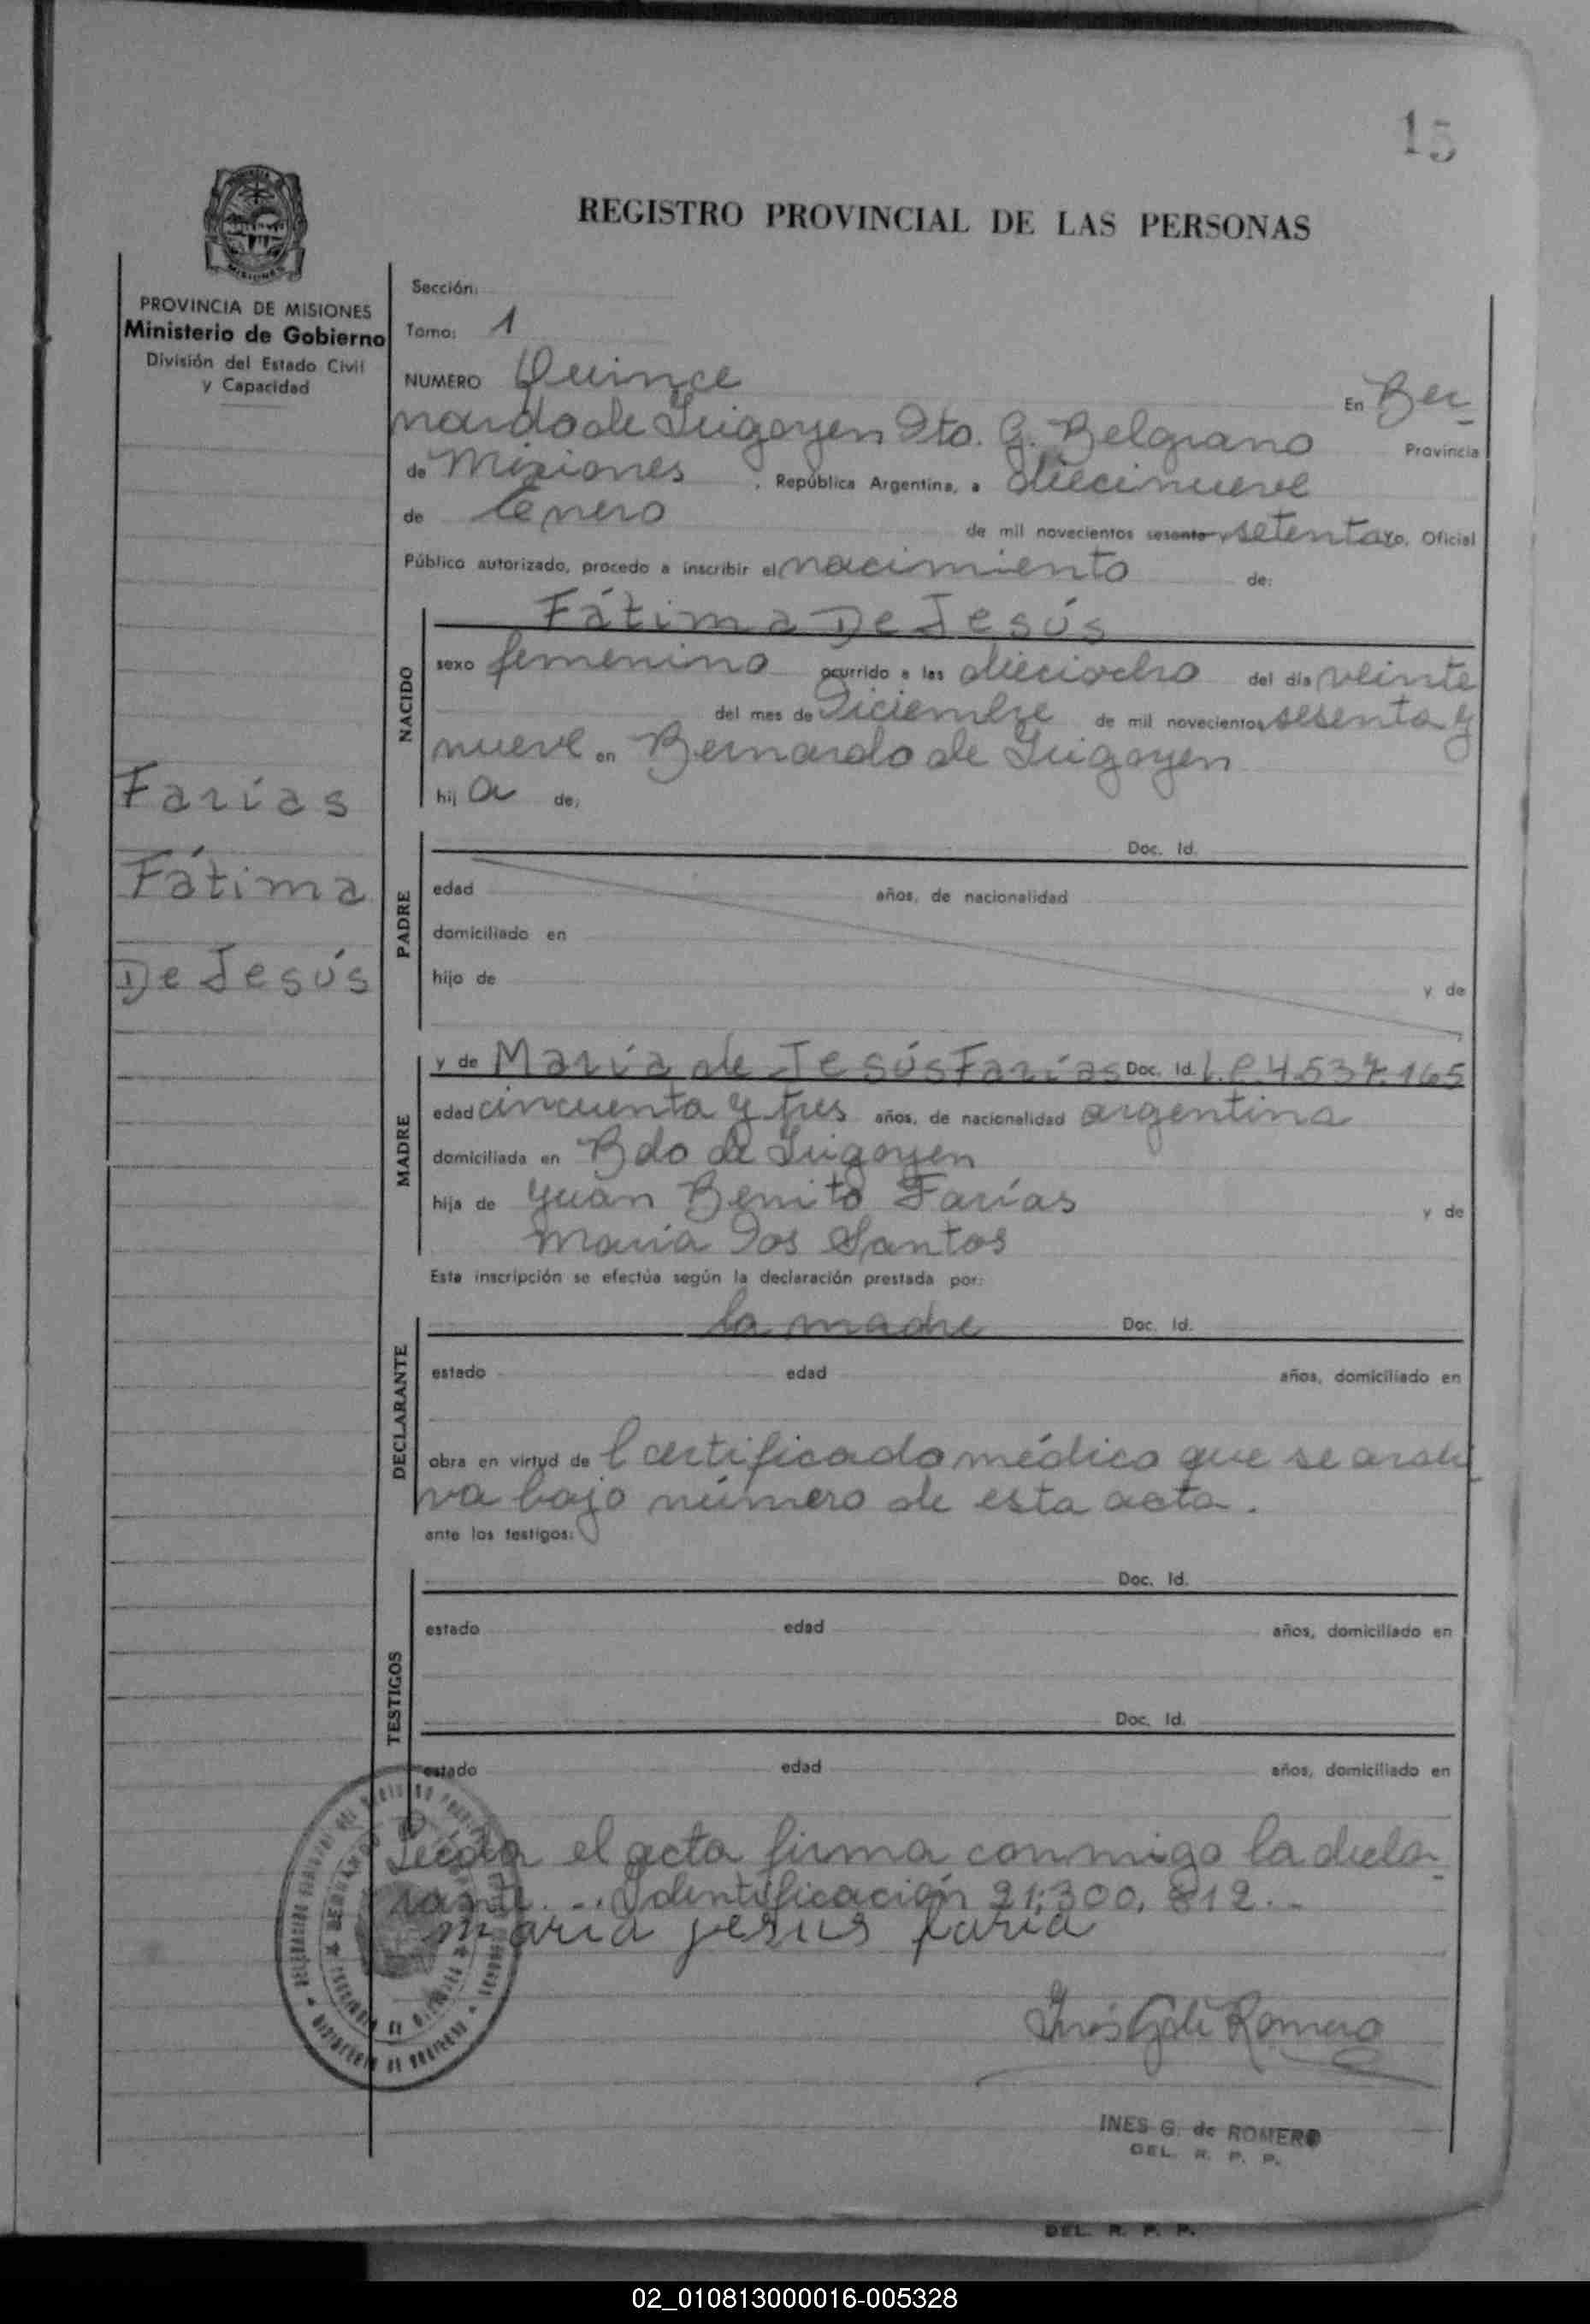 15
REGISTRO PROVINCIAL DE LAS PERSONAS
MISIONES
PROVINCIA DE MISIONES
Ministerio de Gobierno
División del Estado Civil
y Capacidad
Sección:
Tomo: 1
NUMERO Quince En Ber-
nardo de Irigoyen Dto. G. Belgrano Provincia
de Misiones , República Argentina, a diecinueve
de Enero de mil novecientos sesenta y setenta yo, Oficial
Público autorizado, procedo a inscribir el nacimiento de:
Fátima De Jesús
NACIDO
sexo femenino ocurrido a las dieciocho del día veinte
del mes de Diciembre de mil novecientos sesenta y
nueve en Bernardo de Irigoyen
hij a de:
Farías
Fátima
De Jesús
PADRE
Doc. Id.
edad años, de nacionalidad
domiciliado en
hijo de y de
MADRE
y de María de Jesús Farías Doc. Id. L.C. 4.537.165
edad cincuenta y tres años, de nacionalidad argentina
domiciliada en Bdo de Irigoyen
hija de Juan Benito Farías y de
María Dos Santos
Esta inscripción se efectúa según la declaración prestada por:
DECLARANTE
la madre Doc. Id.
estado edad años, domiciliado en
obra en virtud de l certificado médico que se archi
va bajo número de esta acta.
ante los testigos:
TESTIGOS
Doc. Id.
estado edad años, domiciliado en
Doc. Id.
estado edad años, domiciliado en
Leída el acta firma conmigo la decla-
rante. .. Identificación 21.300.812.-
maria jesus faria
Romero
INES G. de ROMERO
DEL. R. P. P.
DEL. R. P. P.
02_010813000016-005328